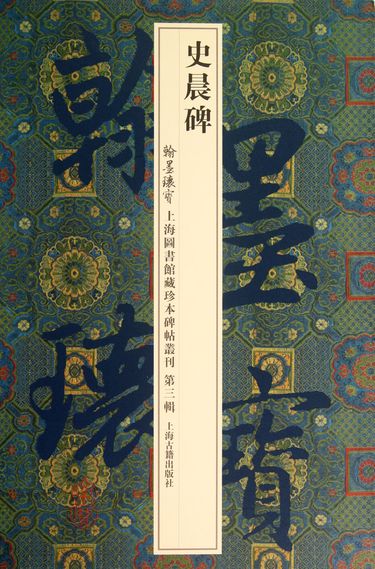 史晨碑
翰墨瓌寶
上海圖書館藏珍本碑帖叢刊 第三輯
上海古籍出版社
翰墨
瓌寶